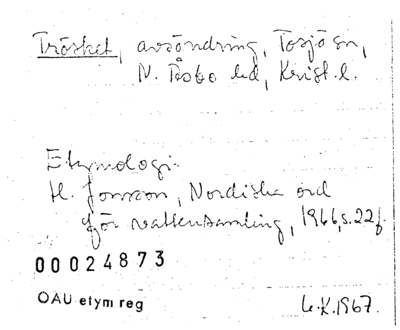 Trösket, avsöndring, Tosjö sn,
N. Åsbo hd, Krist. l.
Etymologi:
H. Jonsson, Nordiska ord
för vattensamling, 1966, s. 22 f.
00024873
OAU etym reg
K. 1967.